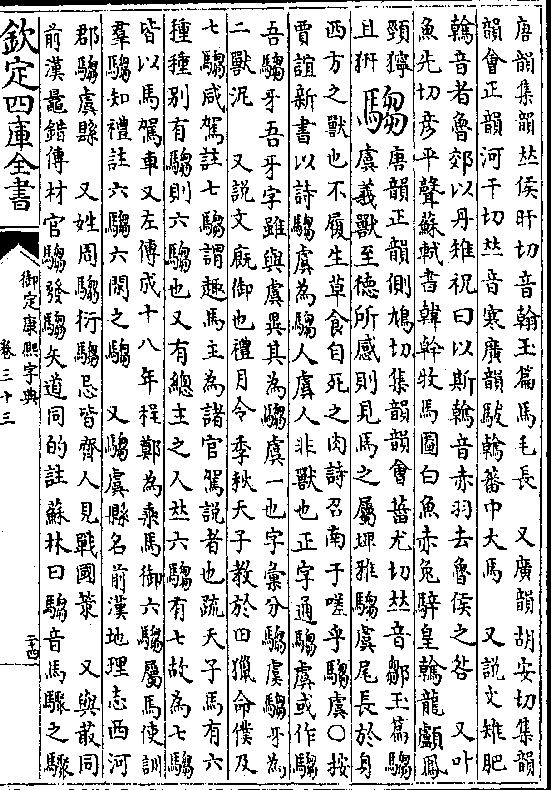 唐韻集韻𠀤侯旰切音翰玉篇馬毛長　又廣韻胡安切集韻
韻會正韻河干切𠀤音寒廣韻駮䮧蕃中大馬　又説文雉肥
䮧音者魯郊以丹雉祝曰以斯䮧音赤羽去魯侯之咎　又叶
魚先切彦平聲蘇軾書韓幹牧馬圖白魚赤兔騂皇䮧龍顱鳳
頸獰
且奸
騶
唐韻正韻側鳩切集韻韻會菑尤切𠀤音鄒玉篇騶
虞義獸至德所感則見馬之屬埤雅騶虞尾長於身
西方之獸也不履生草食自死之肉詩召南于嗟乎騶虞○按
賈誼新書以詩騶虞為騶人虞人非獸也正字通騶虞或作騶
吾騶牙吾牙字雖與虞異其為騶虞一也字彙分騶虞騶牙為
二獸泥　又説文廐御也禮月令季秋天子教於田獵命僕及
七騶咸駕註七騶謂趣馬主為諸官駕説者也疏天子馬有六
種種别有騶則六騶也又有總主之人𠀤六騶有七故為七騶
皆以馬駕車又左傳成十八年程鄭為乘馬御六騶屬馬使訓
羣騶知禮註六騶六閑之騶　又騶虞縣名前漢地理志西河
郡騶虞縣　又姓周騶衍騶忌皆齊人見戰國䇿　又與菆同
前漢鼂錯傳材官騶發騶矢道同的註蘇林曰騶音馬驟之驟
欽定四庫全書
御定康熙字典
卷三十三
二十四